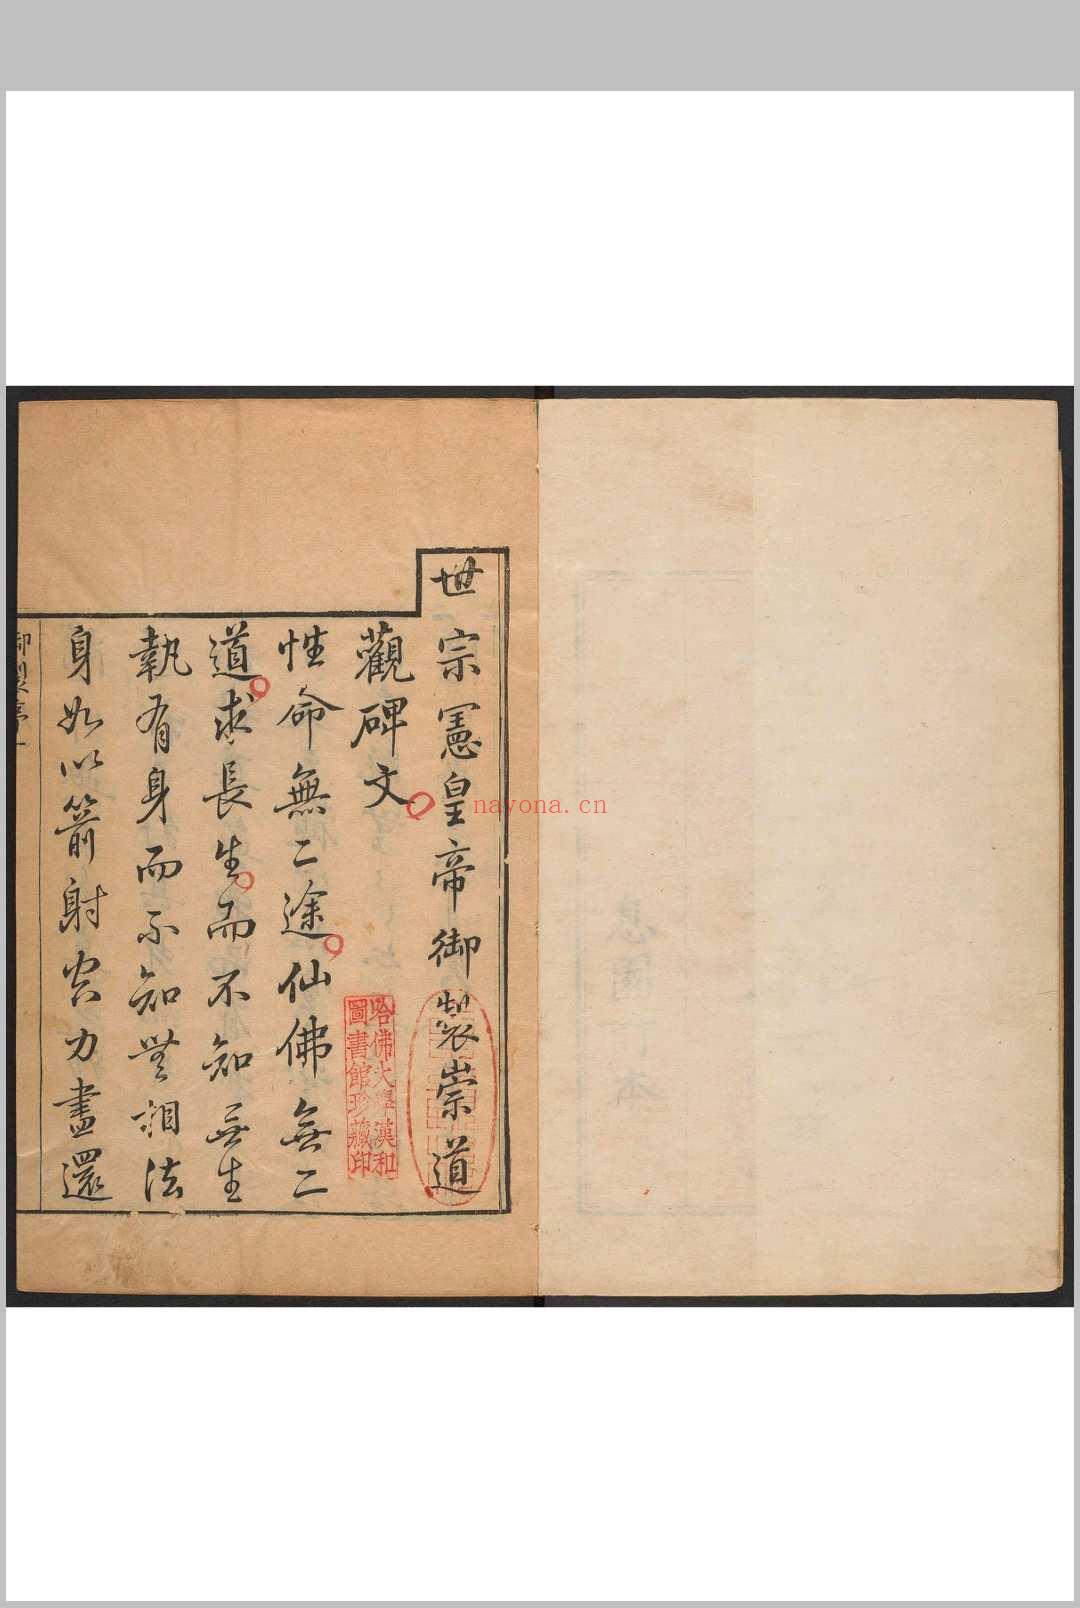 世宗憲皇帝御製崇道
觀碑文
性命無二途仙佛無二
道求長生而不知無生
執有身而不知無相法
身如以箭射空力盡還
御製序
哈佛大學漢和
圖書館珍藏印
nayona.cn